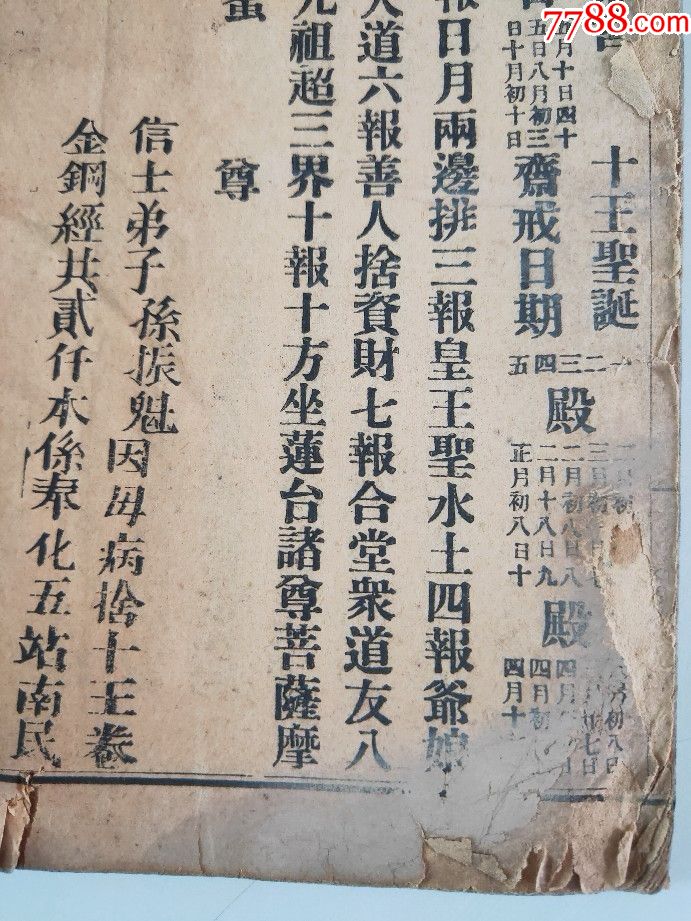 7788.com
中国收藏热线
十王聖誕
一二三四五
殿
二月初八日
二月十八日九
正月初八日十
殿
月初八日
四月初
四月十
五月十日四十
五日八月初三
日十月初十日
齋戒日期
報日月兩邊排三報皇王聖水土四報爺娘
人道六報善人捨資財七報合堂衆道友八
九祖超三界十報十方坐蓮台諸尊菩薩摩
尊
信士弟子孫振魁因母病捨十王卷
金鋼經共貳仟本係奉化五站南民